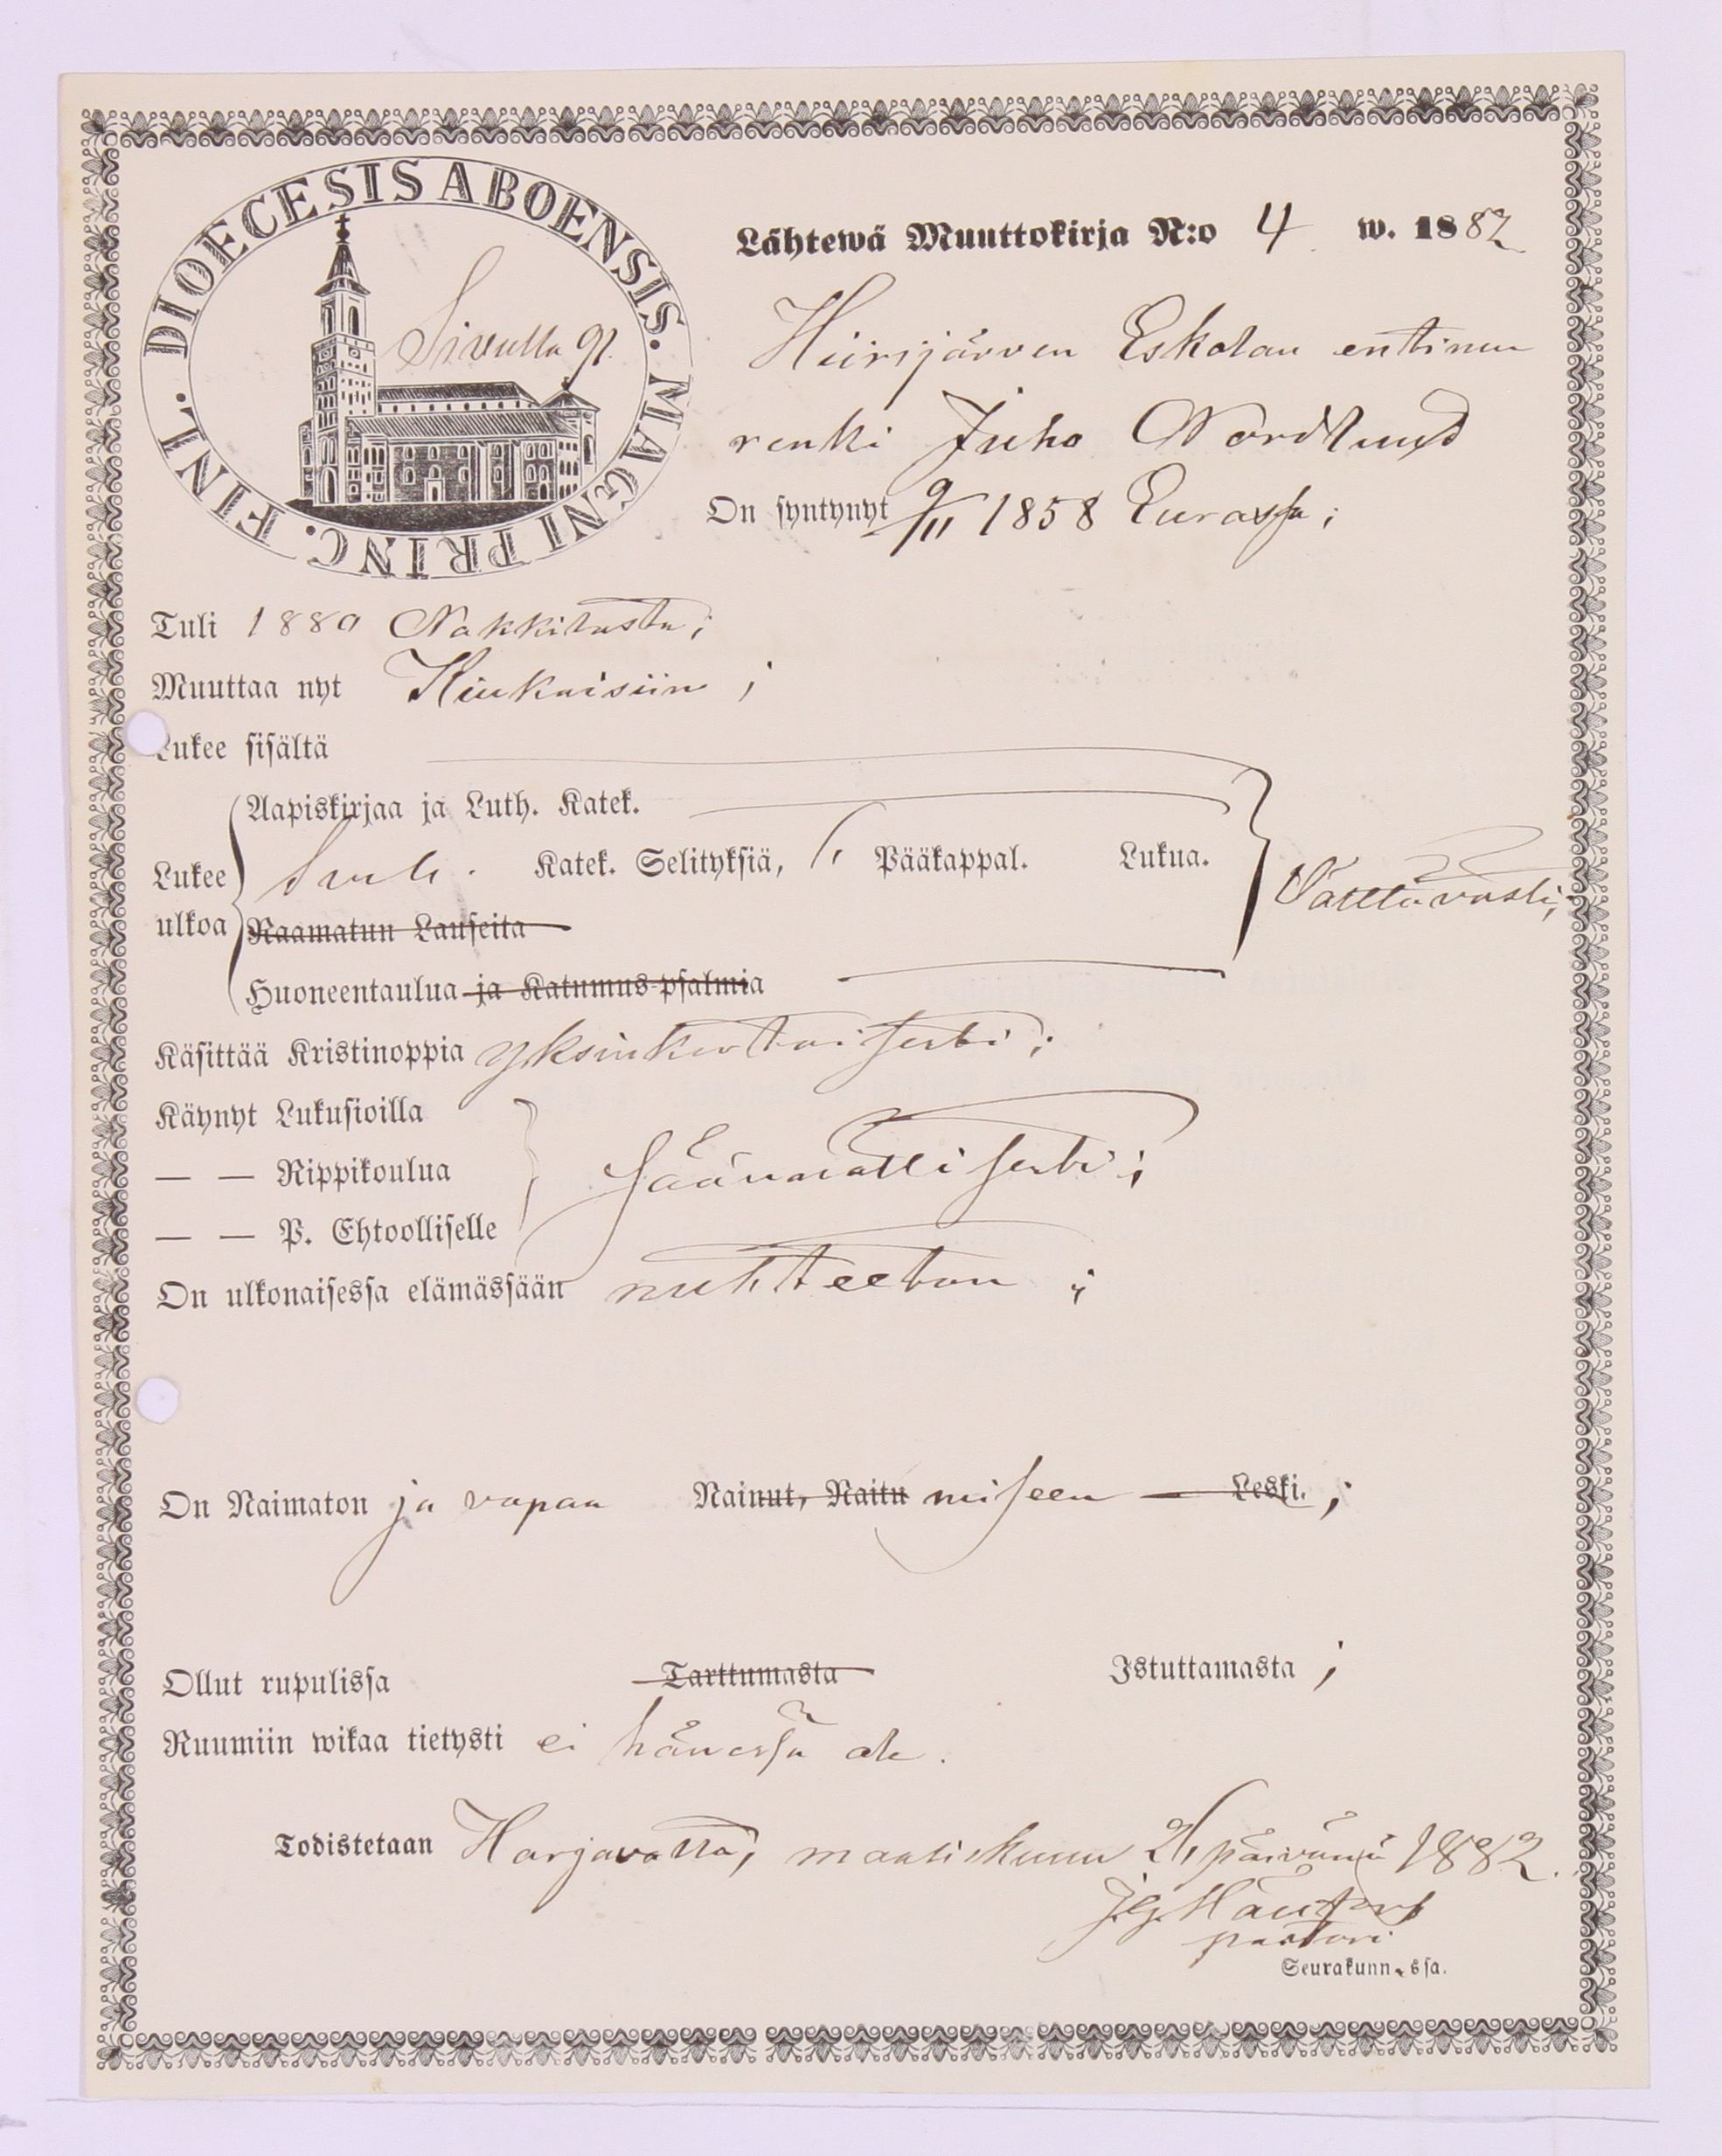 DIOECESIS ABOENSIS. MAGNI PRINC. FINL.
Sivulla 91.
Lähtewä Muuttokirja N:o 4 w. 1882
Hiirijärven Eskolan entinen
renki Juho Nordlund
On syntynyt 9/11 1858 Eurassa;
Tuli 1880 Nakkilasta;
Muuttaa nyt Kiukaisiin;
Lukee sisältä
Aapiskirjaa ja Luth. Katek.
Lukee ulkoa
Katek. Selityksiä, Pääkappal. Lukua.
Välttävästi;
Raamatun Lauseita
Huoneentaulua ja Katumus-psalmia
Käsittää Kristinoppia yksinkertaisesti;
Käynyt Lukusioilla
— — Rippikoulua
säännöllisesti;
— — P. Ehtoolliselle
On ulkonaisessa elämässään nuhteeton;
On Naimaton ja vapaa Nainut, Naitu miseen — Leski. ;
Ollut rupulissa Tarttumasta Istuttamasta ;
Ruumiin wikaa tietysti ei hänessä ole.
Todistetaan Harjavalta, maaliskuun päivänä 1882.
pastori
Seurakunn.ssa.